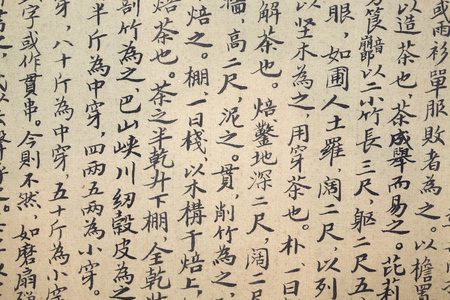 或雨衫單服敗者為之。以檐置
以造茶也，茶成舉而易之。芘莉
筤以二小竹長三尺，軀二尺五
眼，如圃人土羅，闊二尺，以列
以坚木為之，用穿茶也。朴，一曰
解茶也。焙鑿地深二尺，闊二
牆高二尺，泥之。貫，削竹為之，
焙之。棚，一曰棧，以木構于焙上，
茶也。茶之半乾升下棚全乾
剖竹為之，巴山峡川紉穀皮為之
半斤為中穿，四兩五兩為小穿。
穿，八十斤為中穿，五十斤為小
字或作貫串。今則不然，如磨扇